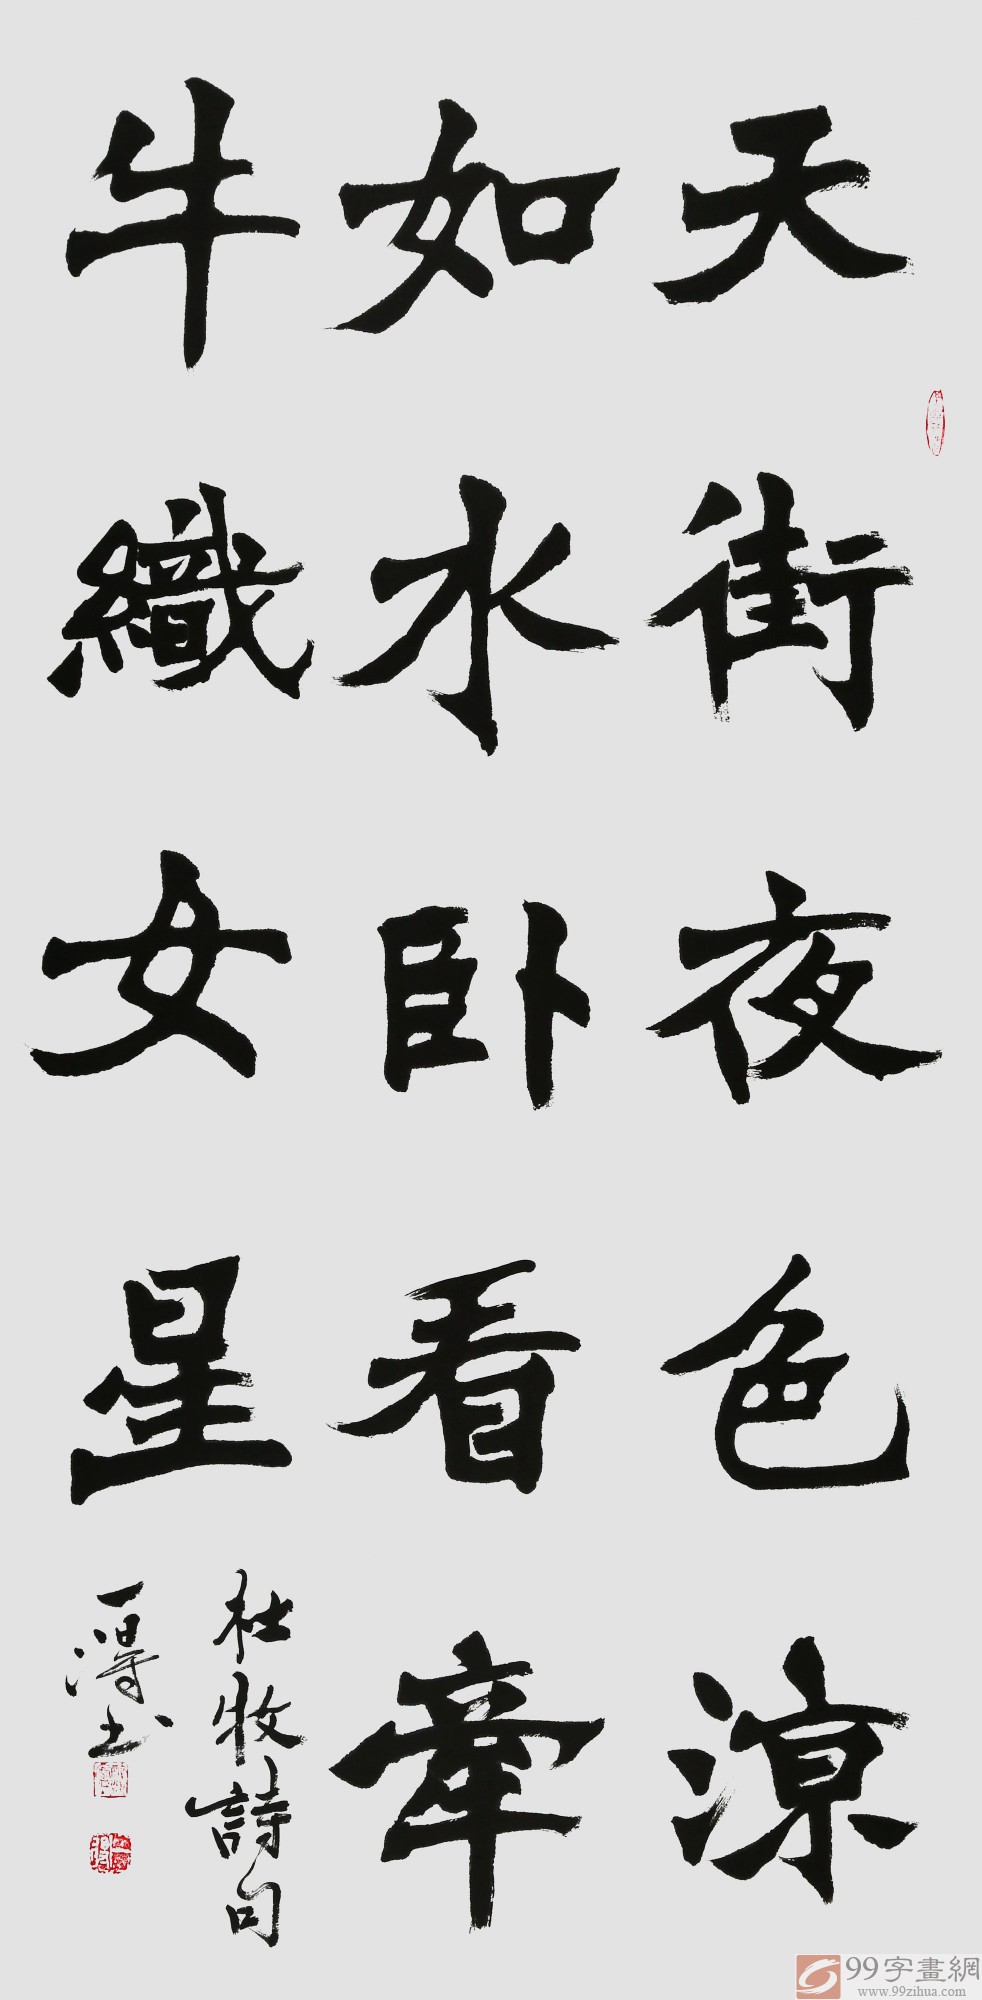 天街夜色涼
如水卧看牽
牛織女星
杜牧詩句
一得书
99字畫網
www.99zihua.com